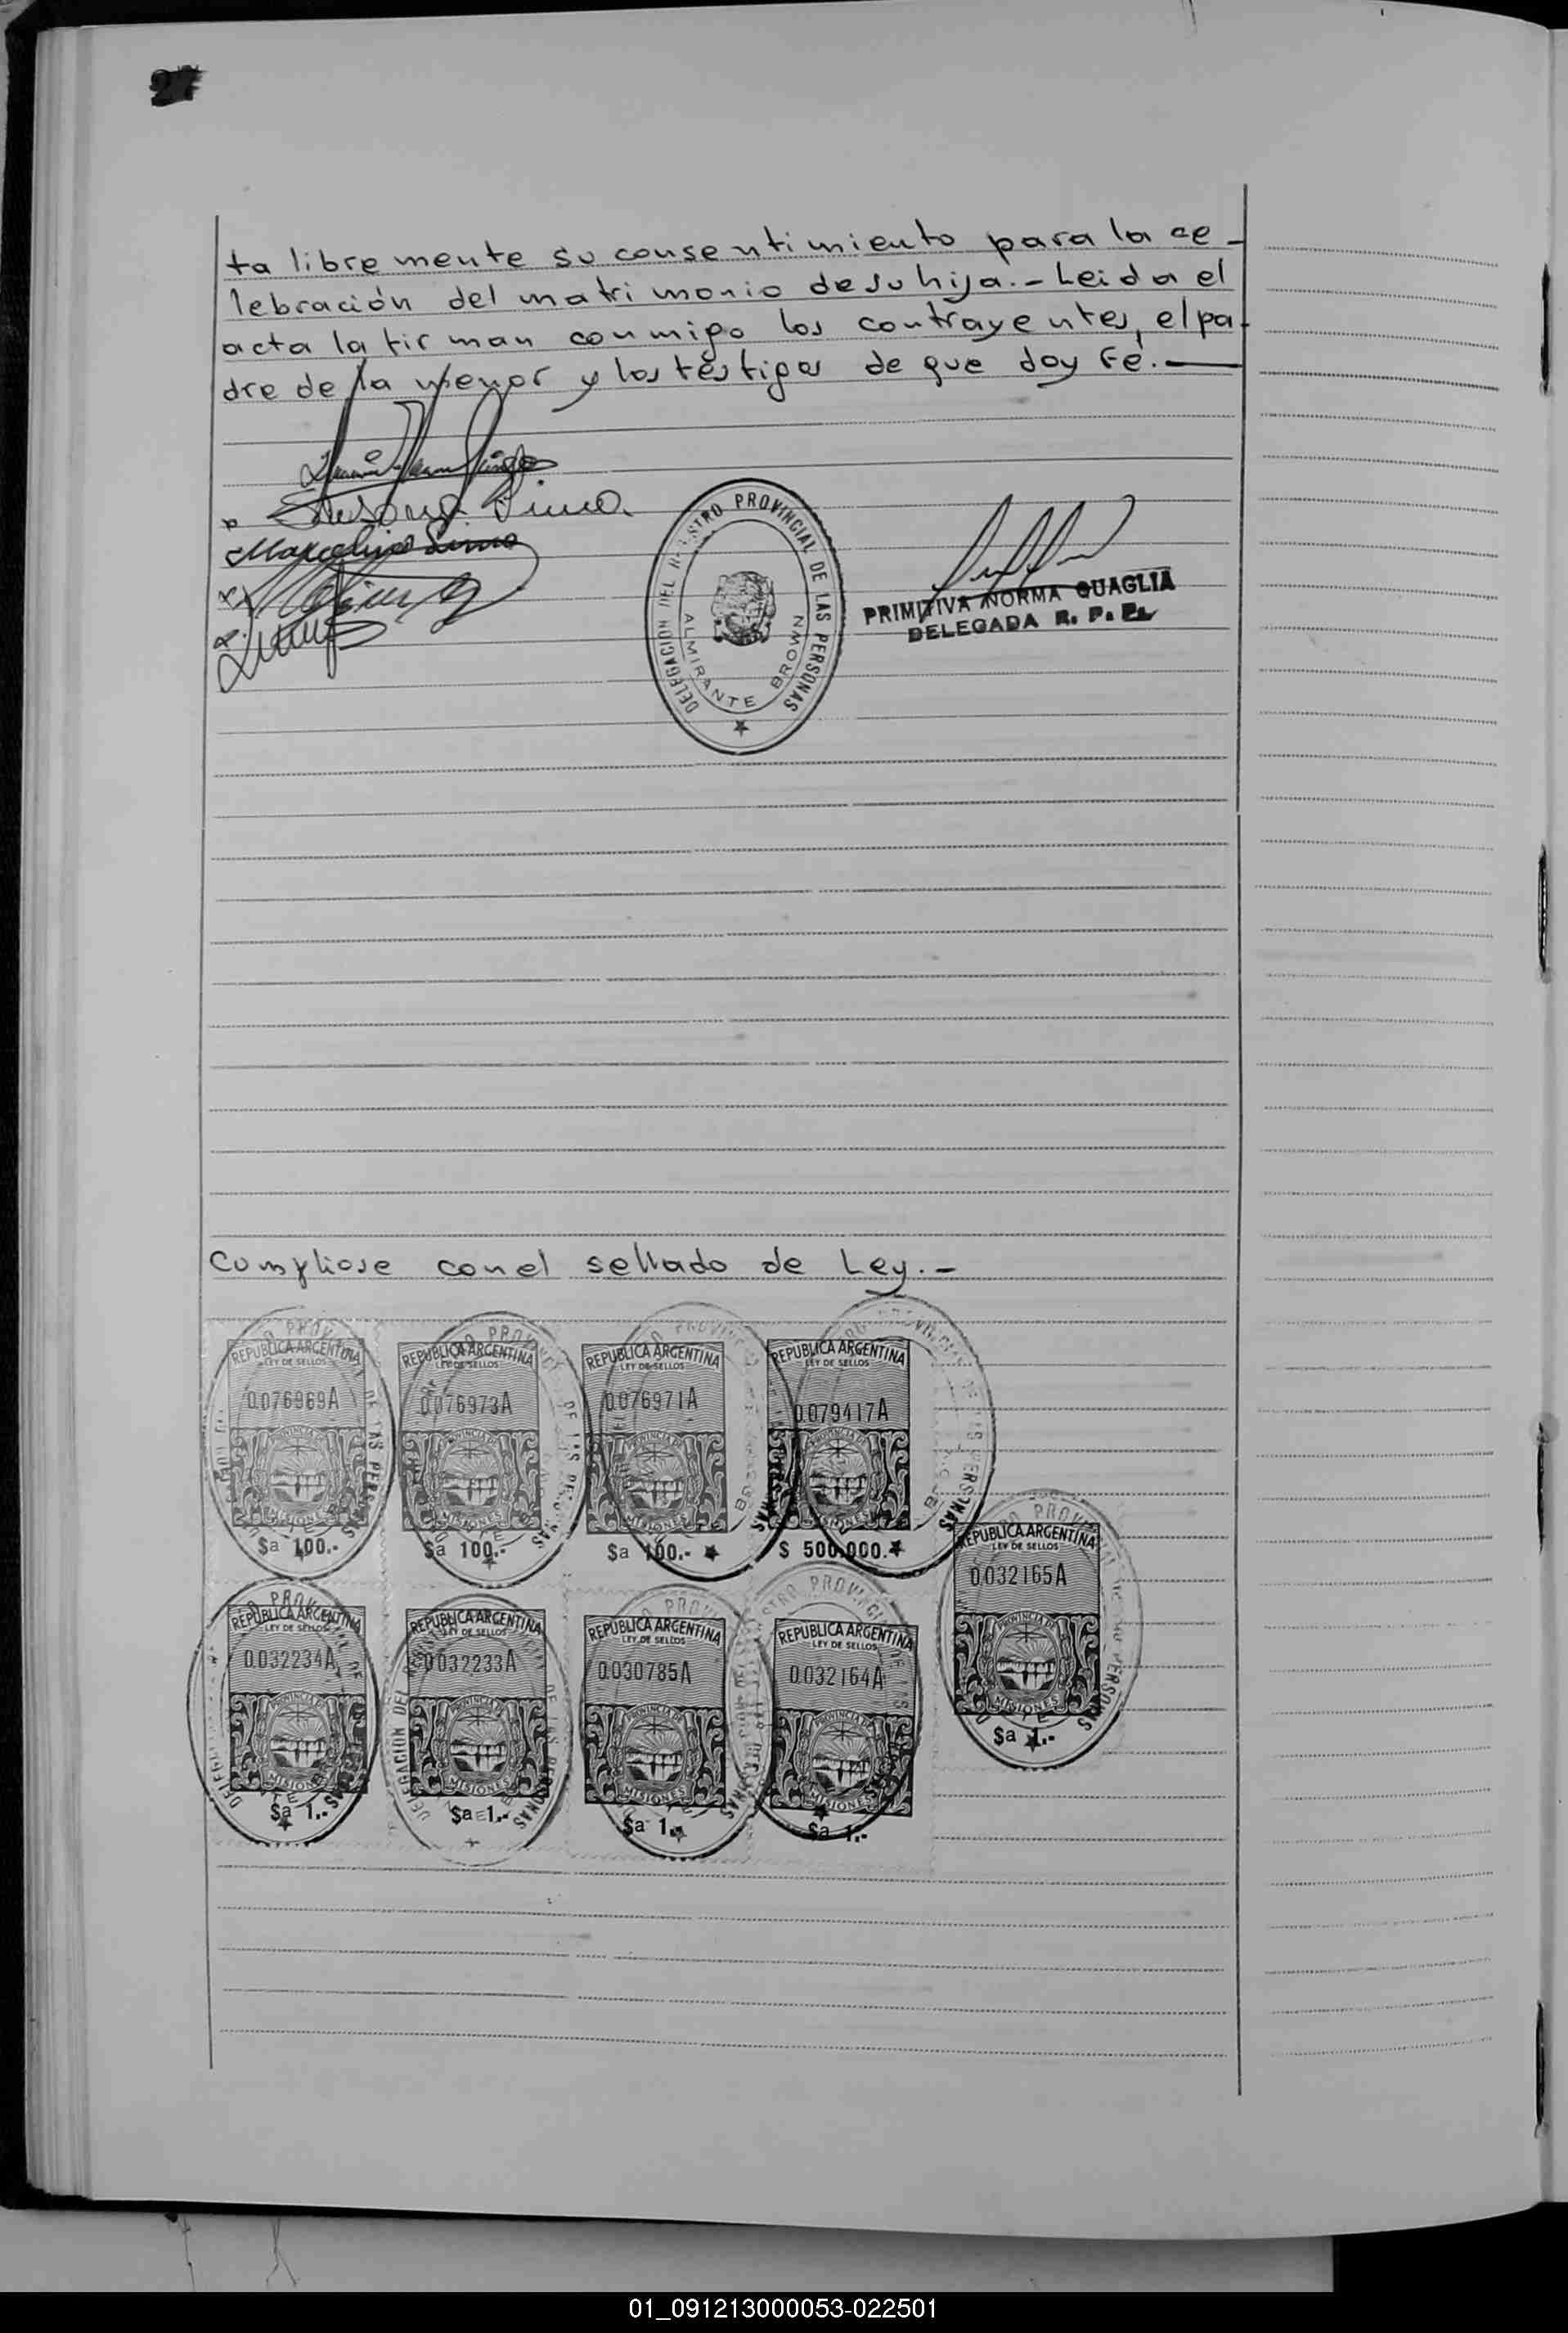 27
ta libremente su consentimiento para la ce-
lebración del matrimonio de su hija.- Leida el
acta la firman conmigo los contrayentes, el pa-
dre de la menor y los testigos de que doy Fé.-
Marcelino
DELEGACION DEL REGISTRO PROVINCIAL DE LAS PERSONAS
ALMIRANTE BROWN
PRIMITIVA NORMA QUAGLIA
DELEGADA R. P. P.
Cumpliose con el sellado de Ley.-
REPUBLICA ARGENTINA
LEY DE SELLOS
0.076969A
PROVINCIA DE
MISIONES
$a 100.-
REPUBLICA ARGENTINA
LEY DE SELLOS
0.076973A
PROVINCIA DE
MISIONES
$a 100.-
REPUBLICA ARGENTINA
LEY DE SELLOS
0.076971A
PROVINCIA DE
MISIONES
$a 100.-
REPUBLICA ARGENTINA
LEY DE SELLOS
0.079417A
PROVINCIA DE
MISIONES
$ 500.000.-
REPUBLICA ARGENTINA
LEY DE SELLOS
0.032165A
PROVINCIA DE
MISIONES
$a 1.-
REPUBLICA ARGENTINA
LEY DE SELLOS
0.032234A
PROVINCIA DE
MISIONES
$a 1.-
REPUBLICA ARGENTINA
LEY DE SELLOS
0.032233A
PROVINCIA DE
MISIONES
$a 1.-
REPUBLICA ARGENTINA
LEY DE SELLOS
0.030785A
PROVINCIA DE
MISIONES
$a 1.-
REPUBLICA ARGENTINA
LEY DE SELLOS
0.032164A
PROVINCIA DE
MISIONES
$a 1.-
01_091213000053-022501